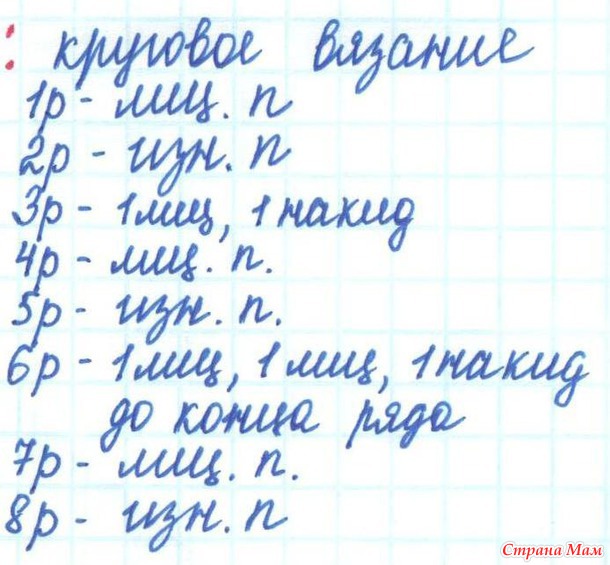 : круговое вязание
1р - лиц. п
2р - изн. п
3р - 1лиц, 1накид
4р - лиц. п.
5р - изн. п.
6р - 1лиц, 1лиц, 1накид
до конца ряда
7р - лиц. п.
8р - изн. п
Страна Мам